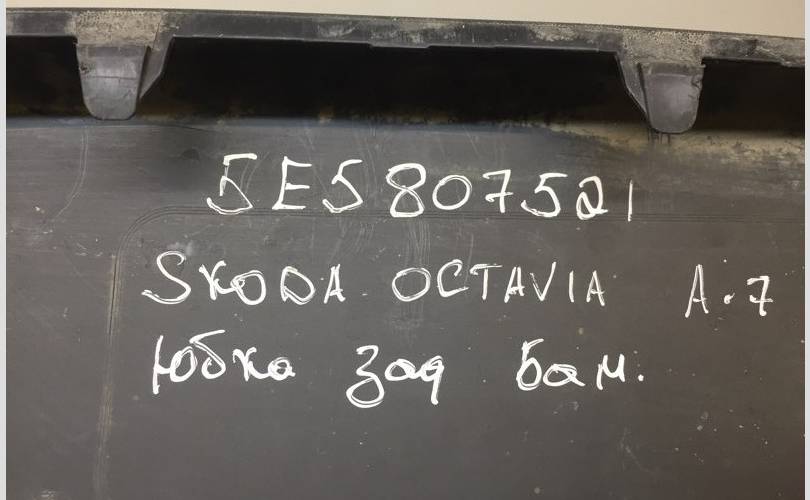 5E5807521
SKODA OCTAVIA A.7
Юбка зад бам.